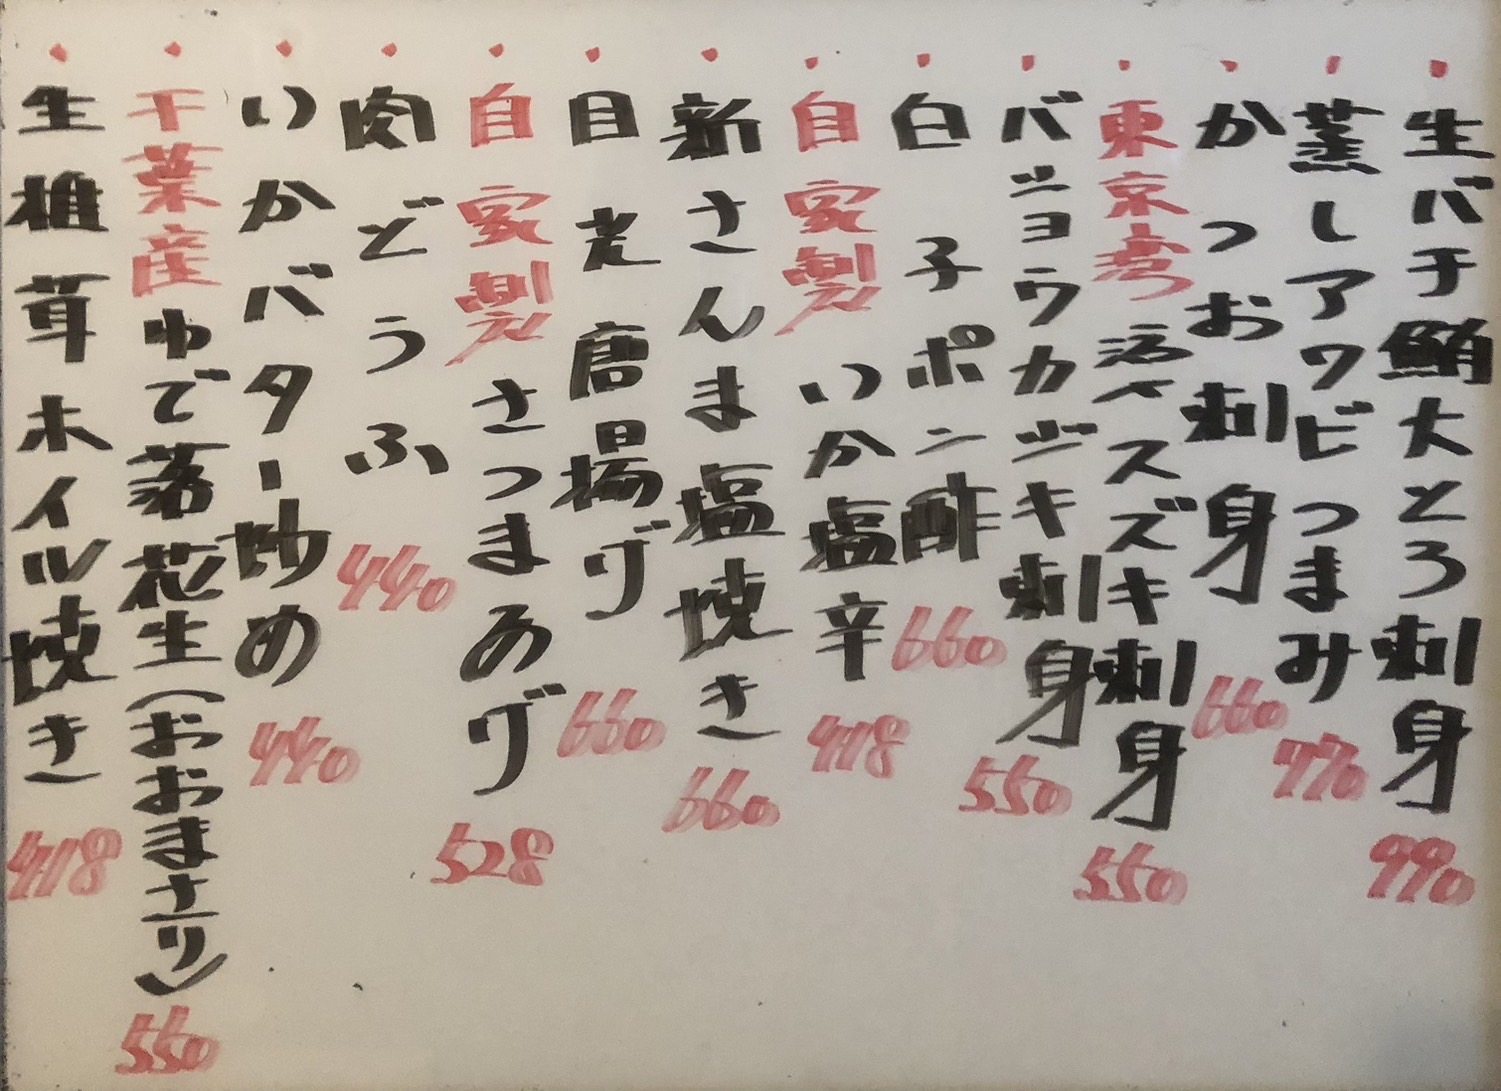 ・生バチ鮪大とろ刺身 990
・蒸しアワビつまみ 770
・かつお刺身 660
・東京湾活〆スズキ刺身 550
・バショウカジキ刺身 550
・白子ポン酢 660
・自家製いか塩辛 418
・新さんま塩焼き 660
・目光唐揚げ 660
・自家製さつまあげ 528
・肉どうふ 440
・いかバター炒め 440
・千葉産ゆで落花生(おおまさり) 550
・生椎茸ホイル焼き 418